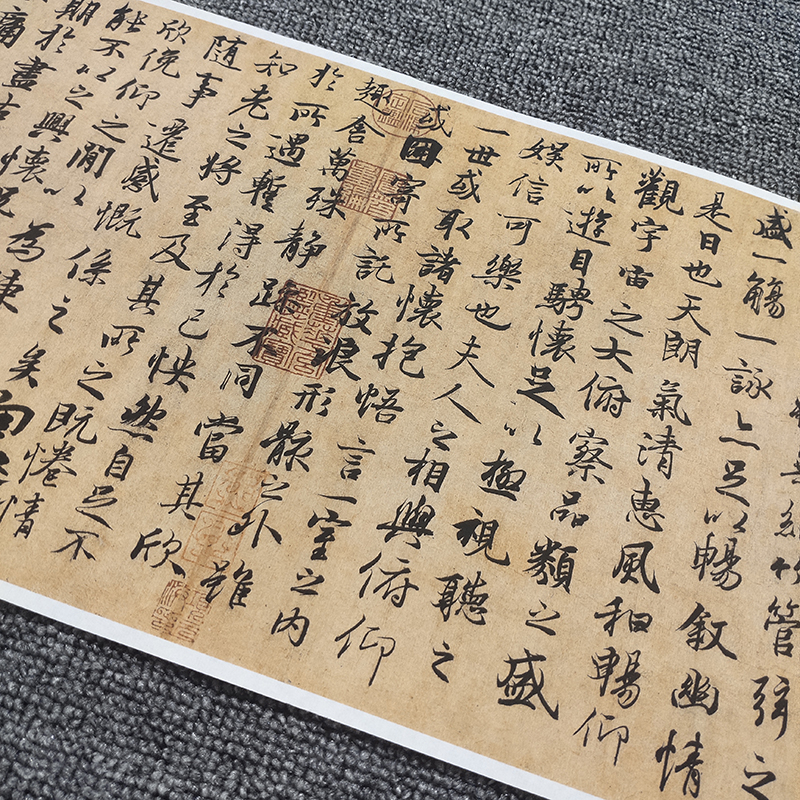 無絲竹管弦之
盛一觴一詠亦足以暢敘幽情
是日也天朗氣清惠風和暢仰
觀宇宙之大俯察品類之盛
所以遊目騁懷足以極視聽之
娛信可樂也夫人之相與俯仰
一世或取諸懷抱悟言一室之內
或因寄所託放浪形骸之外雖
趣舍萬殊靜躁不同當其欣
於所遇暫得於己怏然自足不
知老之將至及其所之既惓情
隨事遷感慨係之矣向之
欣俛仰之閒以為陳
能不以之興懷况
期於盡古
痛